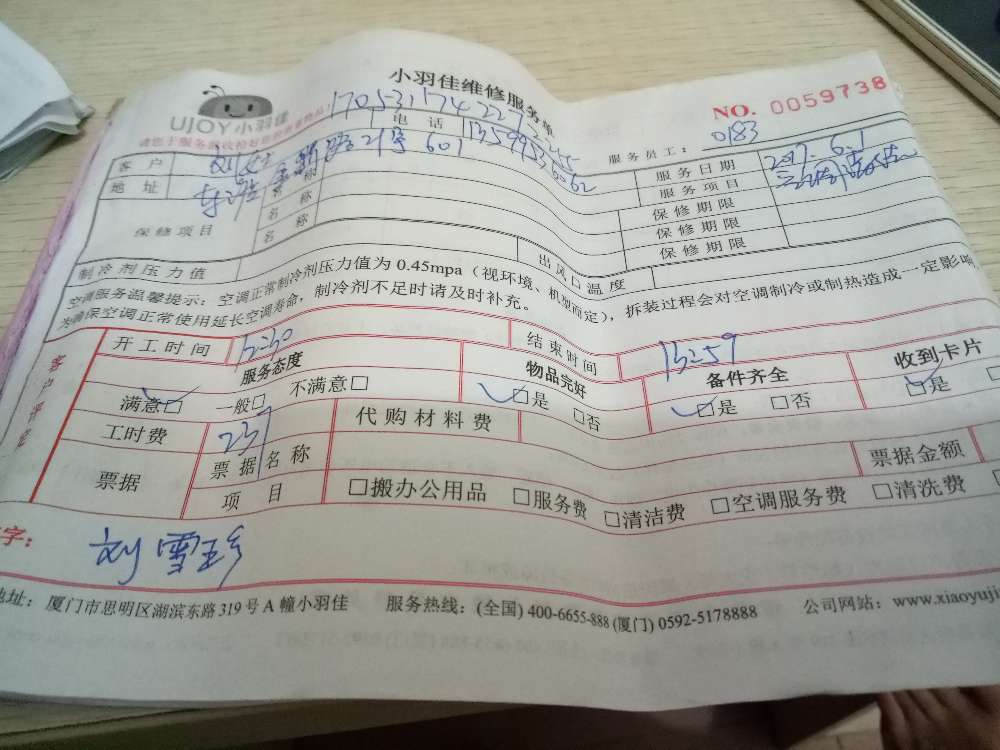 小羽佳维修服务单
NO. 0059738
UJOY小羽佳
服务员工： 0183
客户 电话 服务日期 2017.6.1
地址 路21号 601 名称 服务项目
保修项目 名称 保修期限
名称 保修期限
保修期限
制冷剂压力值 出风口温度
空调服务温馨提示：空调正常制冷剂压力值为 0.45mpa（视环境、机型而定），拆装过程会对空调制冷或制热造成一定影响，
为确保空调正常使用延长空调寿命，制冷剂不足时请及时补充。
客户评鉴
开工时间 结束时间 15:59
服务态度 物品完好 备件齐全 收到卡片
满意□ 一般□ 不满意□ □是 □否 □是 □否 □是
工时费 237 代购材料费
票据 票据名称 票据金额
项目 □搬办公用品 □服务费 □清洁费 □空调服务费 □清洗费
字： 刘雪珍
地址： 厦门市思明区湖滨东路 319 号 A 幢小羽佳 服务热线：(全国) 400-6655-888 (厦门) 0592-5178888 公司网站：www.xiaoyuji